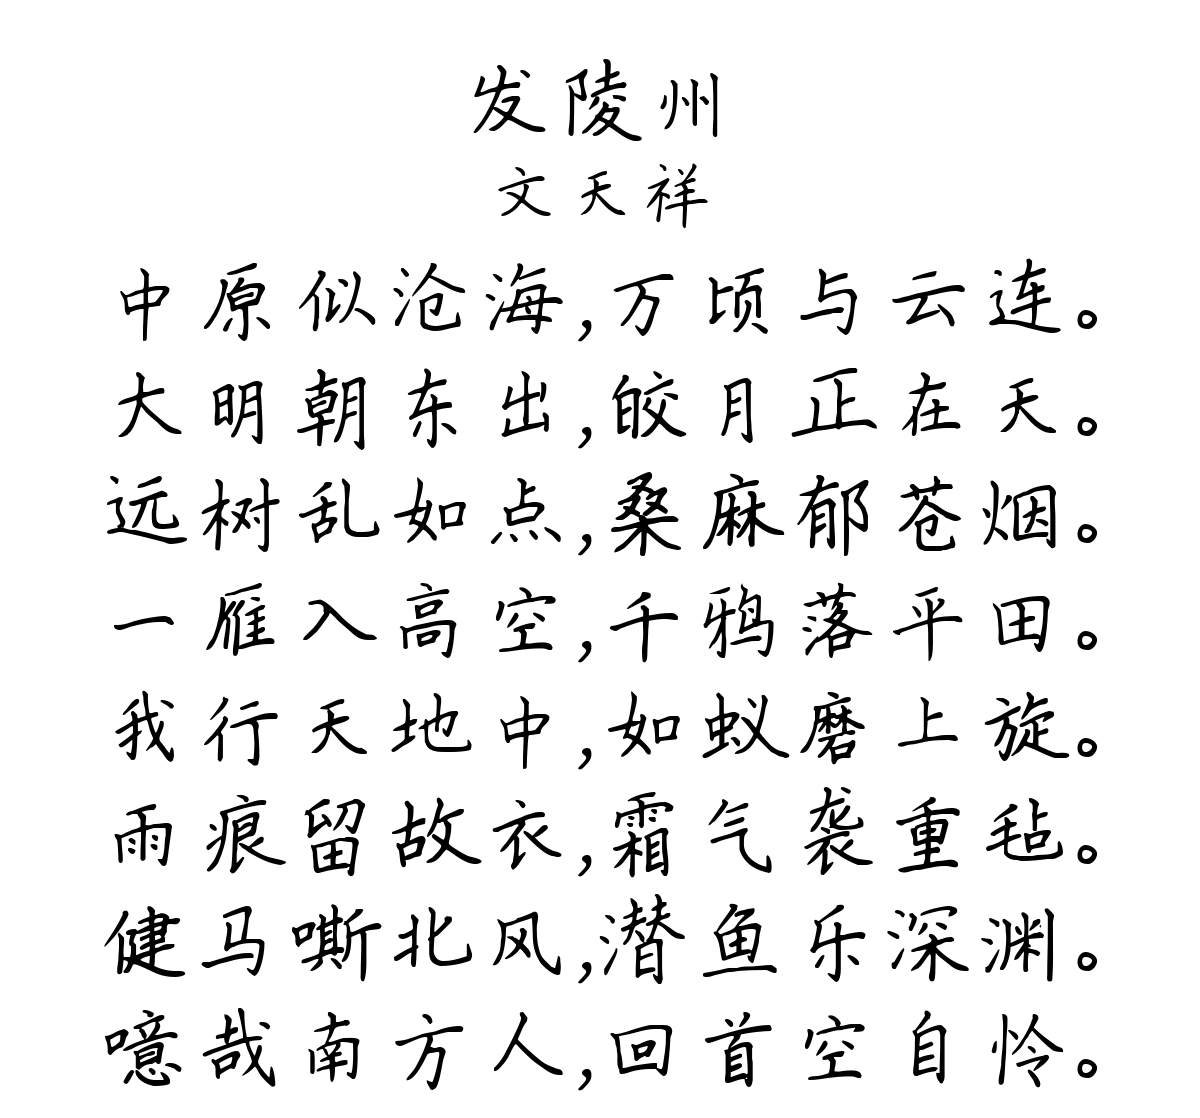 发陵州
文天祥
中原似沧海,万顷与云连。
大明朝东出,皎月正在天。
远树乱如点,桑麻郁苍烟。
一雁入高空,千鸦落平田。
我行天地中,如蚁磨上旋。
雨痕留故衣,霜气袭重毡。
健马嘶北风,潜鱼乐深渊。
噫哉南方人,回首空自怜。